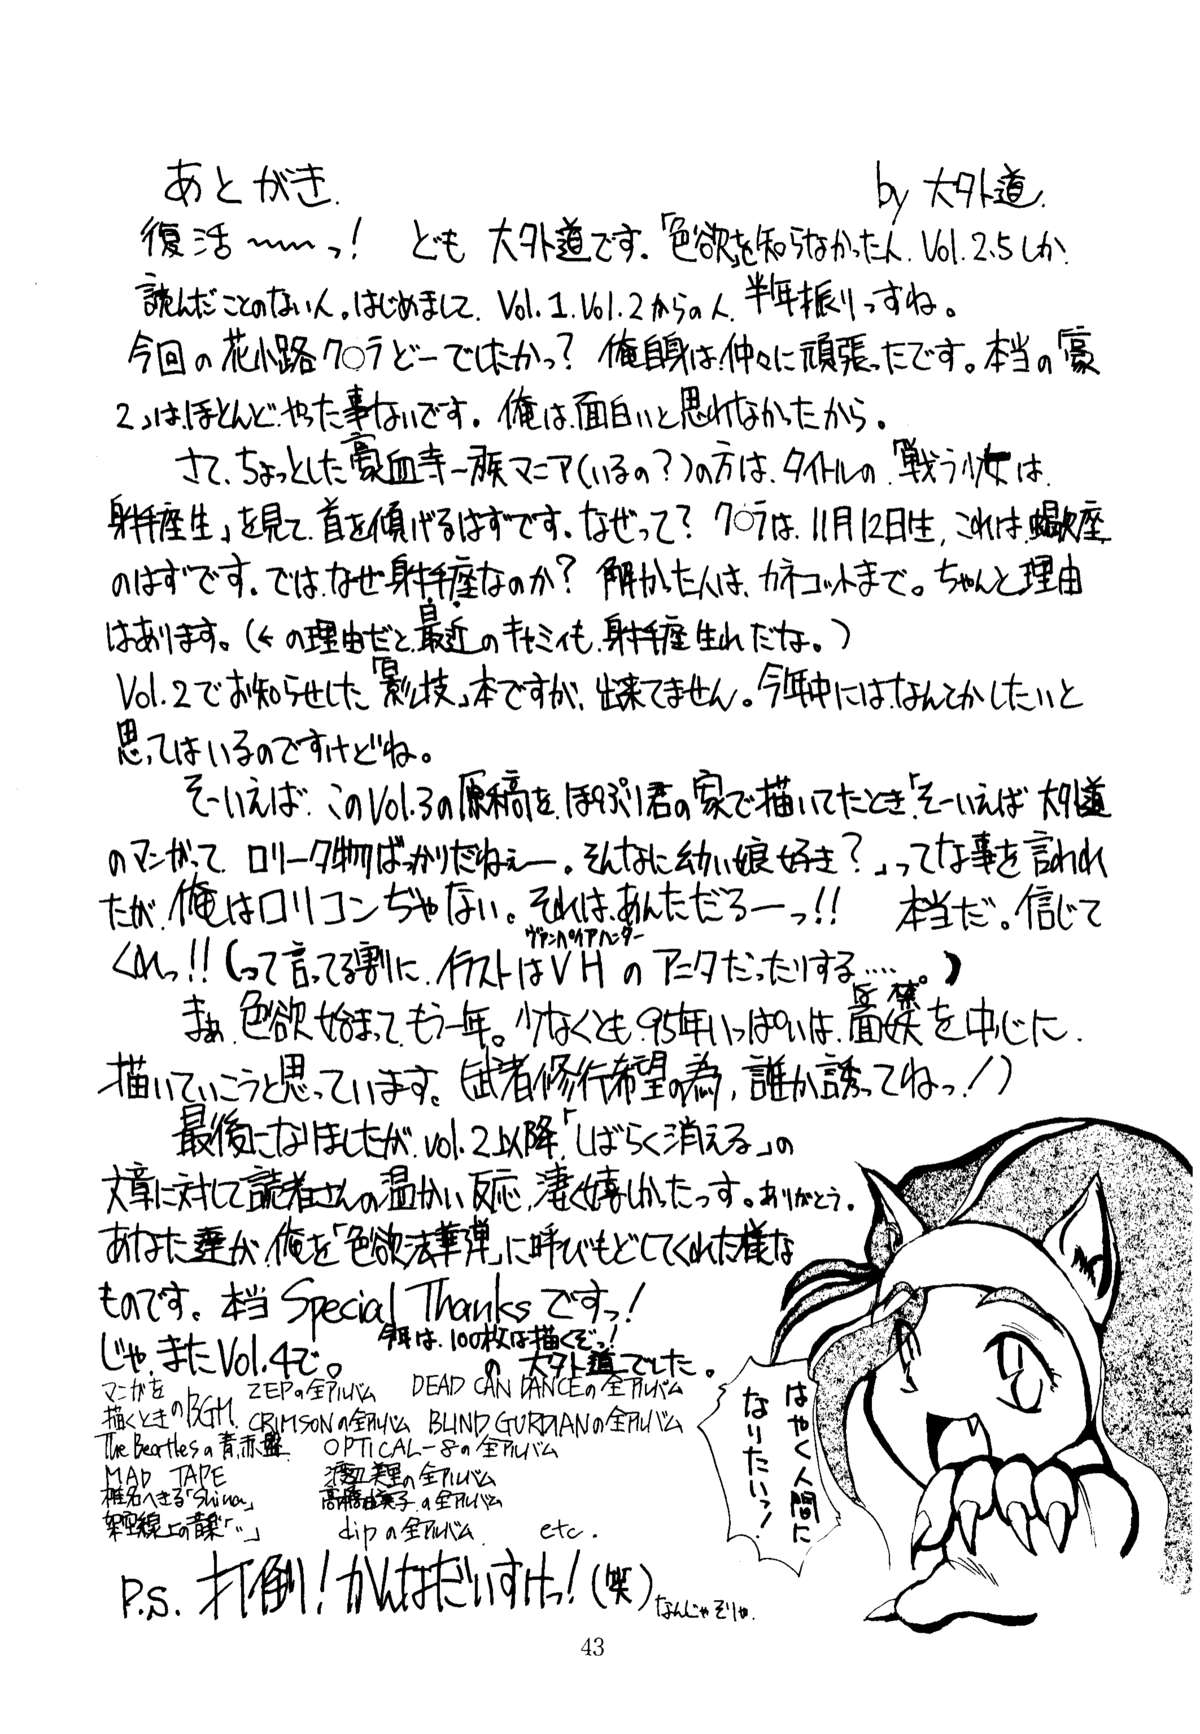 あとがき.
by 大外道.
復活〜〜っ! ども 大外道です。「色欲」を知らなかった人、Vol.2.5しか
読んだことのない人。はじめまして、Vol.1、Vol.2からの人、半年振りっすね。
今回の花小路ク○ラどーでしたかっ? 俺自身は仲々に頑張ったです。本当の「豪
2」はほとんどやった事ないです。俺は面白いと思れなかったから。
さて、ちょっとした豪血寺一族マニア(いるの?)の方は、タイトルの「戦う少女は
射手座生」を見て、首を傾げるはずです。なぜって? ク○ラは、11月12日生、これは、蝎座
のはずです。では、なぜ射手座なのか? 解かった人は、カネコットまで。ちゃんと理由
はあります。(←の理由だと、最近のキャミィも、射手座生れだな。)
Vol.2でお知らせした「影技」本ですが、出来てません。今年中にはなんてかしたいと
思ってはいるのですけどね。
そーいえば、このVol.3の原稿を、ぽぷり君の家で描いてたとき、「そーいえば 大外道
のマンガって ロリータ物ばっかりだねぇー。そんなに幼い娘好き?」ってな事を言われ
たが、俺はロリコンぢゃない。それは、あんただろーっ!! 本当だ。信じて
くれっ!!(って言ってる割に、イラストはVHのアニタだったりする……。)
ヴァンパイアハンター
まぁ、色欲始まってもう一年。少なくとも、95年いっぱいは、を中心に
描いていこうと思っています。(武者修行希望の為、誰か誘ってねっ!)
最後になりましたが、vol.2以降「しばらく消える」の
文章に対して読者さんの温かい反応、凄く嬉しかったっす。ありがとう。
あなた達が、俺を「色欲法華弾」に呼びもどしてくれた様な
ものです。本当 Special Thanksですっ!
じゃ、またVol.4で。
今年は、100枚は描くぞっ!
の 大外道でした。
マンガを描くときのBGM
ZEPの全アルバム DEAD CAN DANCEの全アルバム
CRIMSONの全アルバム BLIND GURDIANの全アルバム
The Beartlesの青、赤盤 OPTICAL-8の全アルバム
MAD TAPE 渡辺美里の全アルバム
椎名へきる「Shiina」 高橋由美子の全アルバム
架空線上の音楽「〃」 dipの全アルバム etc.
P.S. 打倒! かんなだいすけっ!(笑) なんじゃそりゃ.
はやく人間に
なりたいっ!
43